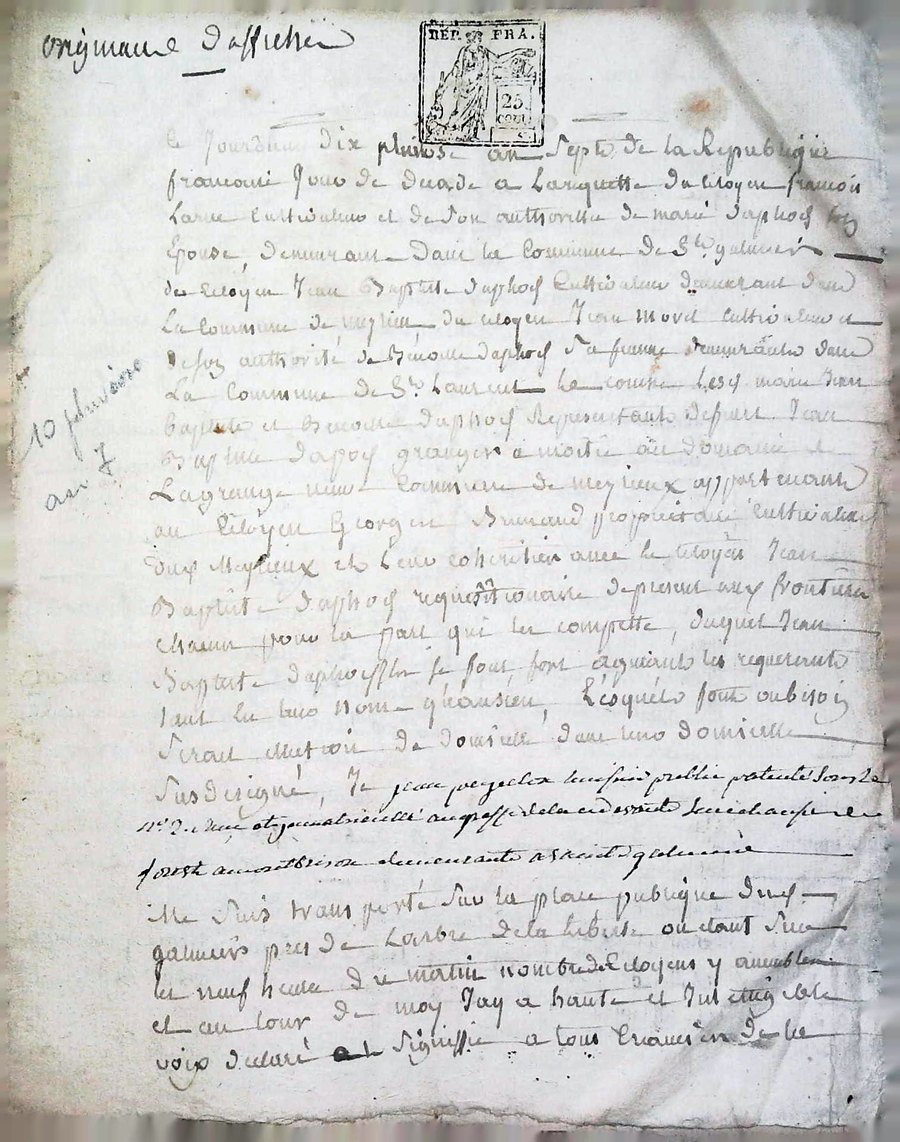 originalle d'affiche
REP. FRA.
25.
Ce Jourdhui dix pluviose an Septe de la Republique
francoise Jour de decade a La requette du Citoyen francois
Larue Cultivateur et de son authoritte de marie daphos son
Epouse, demeurant dans la Commune de St galmier
du Citoyen Jean Baptiste daphos Cultivateur demeurant dans
La Commune de meylieu du Citoyen Jean morel Cultivateur et
de son authorité de Benoitte daphos Sa femme demeurante dans
La Commune de St Laurent la conche Lesd marie Jean
baptiste et Benoitte daphos Representant defunt Jean
Baptiste dapos granger a moitié au domaine de
Lagrange neuve Commune de meylieux appartenante
au Citoyen George Brunand proprietaire Cultivateur
dud Meylieux et Leur cohéritier avec le Citoyen Jean
Baptiste daphos requisitionaire de present aux frontiere
chacun pour la part qui les compette, duquel Jean
Baptiste daphos se font fort agissants les requerants
tant en leur nom qu'audit, Lesquels font au besoin
election de domicille dans leur domicille
Susdesigné, Je jean huissier public patenté Sous le
n° 2 et au greffe de la cidevant Sénéchaussée de
forest a montbrison demeurante a saint galmier
Me Suis transporté Sur la place publique dud
galmier pres de Larbre de la liberté ou etant Sur
les neuf heure du matin nombre de Citoyens y assemblés
et au tour de moy Jay a haute et Intelligible
voix declaré et Signiffié a tous Creanciers de la
10 pluviôse
an 7